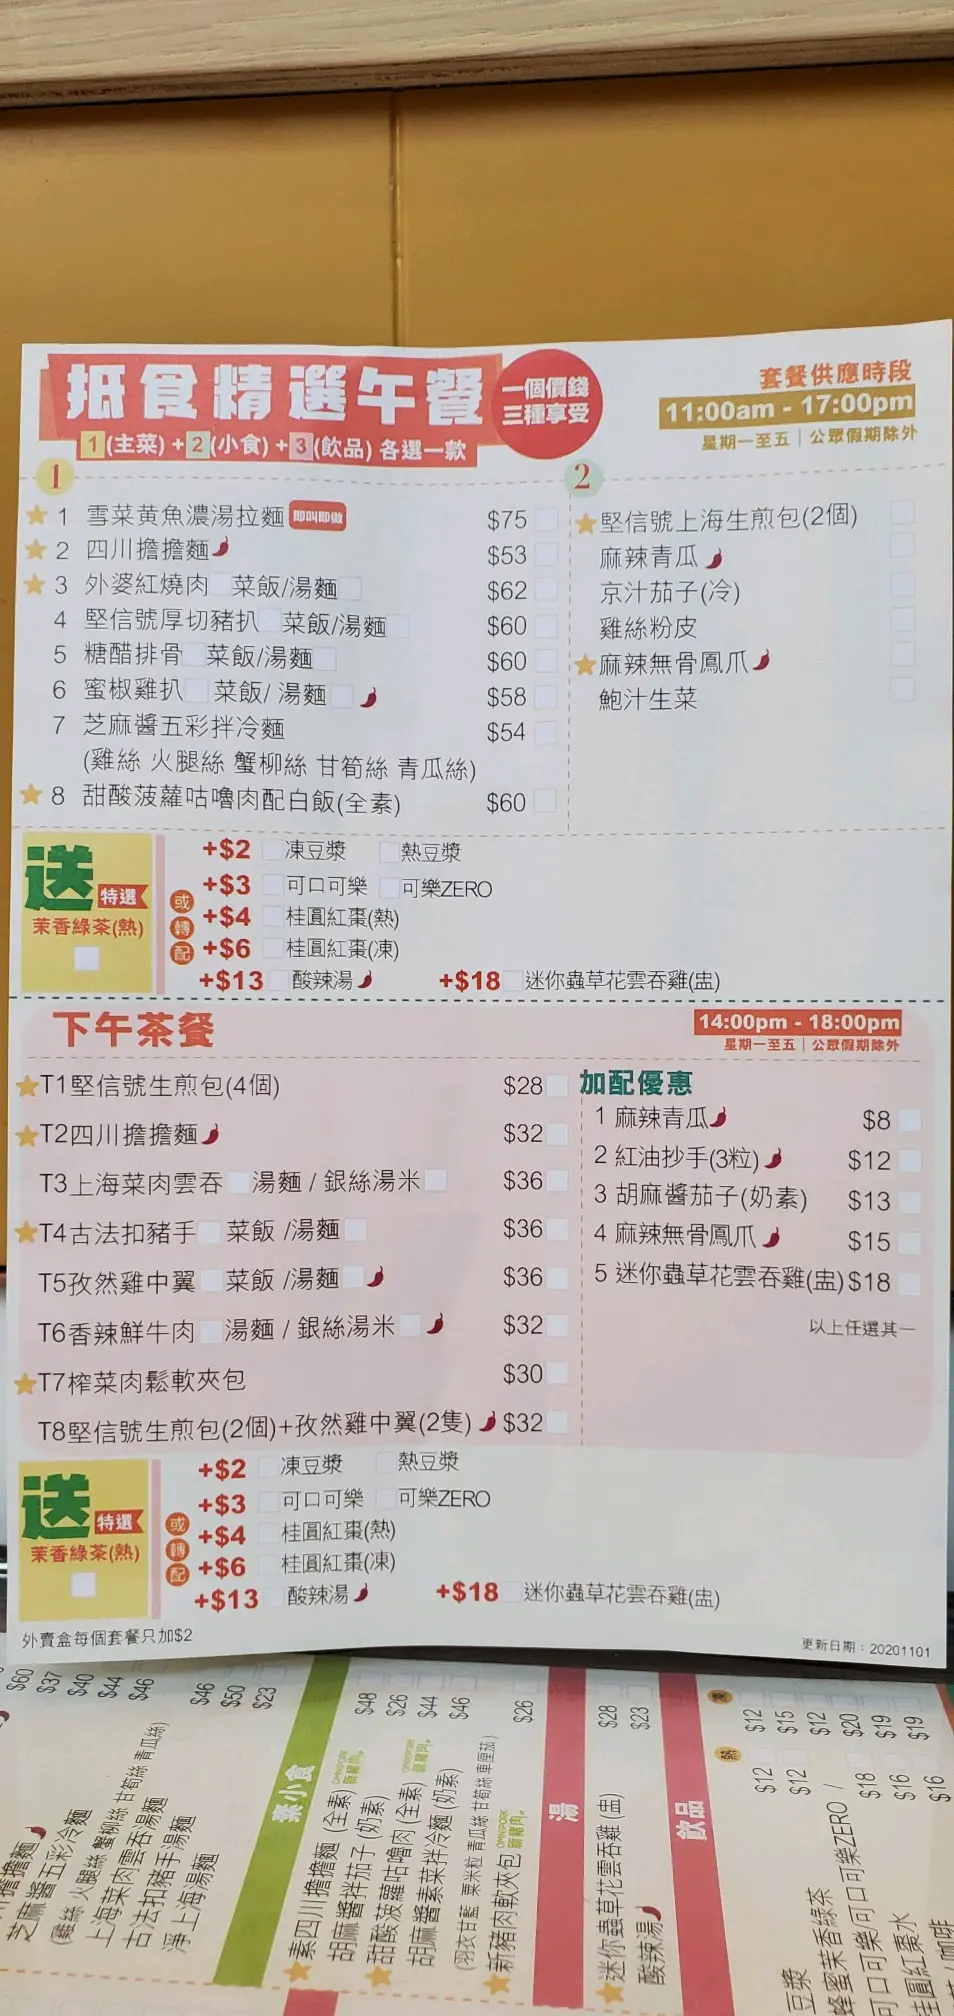 抵食精選午餐
1(主菜)+2(小食)+3(飲品)各選一款
一個價錢
三種享受
套餐供應時段
11:00am - 17:00pm
星期一至五｜公眾假期除外
1
1 雪菜黃魚濃湯拉麵 即叫即做 $75
2 四川擔擔麵 $53
3 外婆紅燒肉 菜飯/湯麵 $62
4 堅信號厚切豬扒 菜飯/湯麵 $60
5 糖醋排骨 菜飯/湯麵 $60
6 蜜椒雞扒 菜飯/ 湯麵 $58
7 芝麻醬五彩拌冷麵 $54
(雞絲 火腿絲 蟹柳絲 甘筍絲 青瓜絲)
8 甜酸菠蘿咕嚕肉配白飯(全素) $60
2
堅信號上海生煎包(2個)
麻辣青瓜
京汁茄子(冷)
雞絲粉皮
麻辣無骨鳳爪
鮑汁生菜
送 特選
茉香綠茶(熱)
或轉配
+$2 凍豆漿 熱豆漿
+$3 可口可樂 可樂ZERO
+$4 桂圓紅棗(熱)
+$6 桂圓紅棗(凍)
+$13 酸辣湯 +$18 迷你蟲草花雲吞雞(盅)
下午茶餐
14:00pm - 18:00pm
星期一至五｜公眾假期除外
T1堅信號生煎包(4個) $28
T2四川擔擔麵 $32
T3上海菜肉雲吞 湯麵 / 銀絲湯米 $36
T4古法扣豬手 菜飯 /湯麵 $36
T5孜然雞中翼 菜飯 /湯麵 $36
T6香辣鮮牛肉 湯麵 / 銀絲湯米 $32
T7榨菜肉鬆軟夾包 $30
T8堅信號生煎包(2個)+孜然雞中翼(2隻) $32
加配優惠
1 麻辣青瓜 $8
2 紅油抄手(3粒) $12
3 胡麻醬茄子(奶素) $13
4 麻辣無骨鳳爪 $15
5 迷你蟲草花雲吞雞(盅) $18
以上任選其一
送 特選
茉香綠茶(熱)
或轉配
+$2 凍豆漿 熱豆漿
+$3 可口可樂 可樂ZERO
+$4 桂圓紅棗(熱)
+$6 桂圓紅棗(凍)
+$13 酸辣湯 +$18 迷你蟲草花雲吞雞(盅)
外賣盒每個套餐只加$2
更新日期：20201101
$60
擔擔麵 $37
芝麻醬五彩冷麵 $40
(雞絲 火腿絲 蟹柳絲 甘筍絲 青瓜絲)
上海菜肉雲吞湯麵 $46
古法扣豬手湯麵 $50
淨上海湯麵 $23
素小食
素四川擔擔麵 (全素) $48
胡麻醬拌茄子 (奶素) $26
甜酸菠蘿咕嚕肉 (全素) $44
胡麻醬素菜拌冷麵 (奶素) $46
(羽衣甘藍 粟米粒 青瓜絲 甘筍絲 車厘茄)
新豬肉軟夾包 $26
湯
迷你蟲草花雲吞雞 (盅) $28
酸辣湯 $23
飲品
熱 凍
豆漿 $12 $12
蜂蜜茉香綠茶 $12 $15
可口可樂/可口可樂ZERO / $12